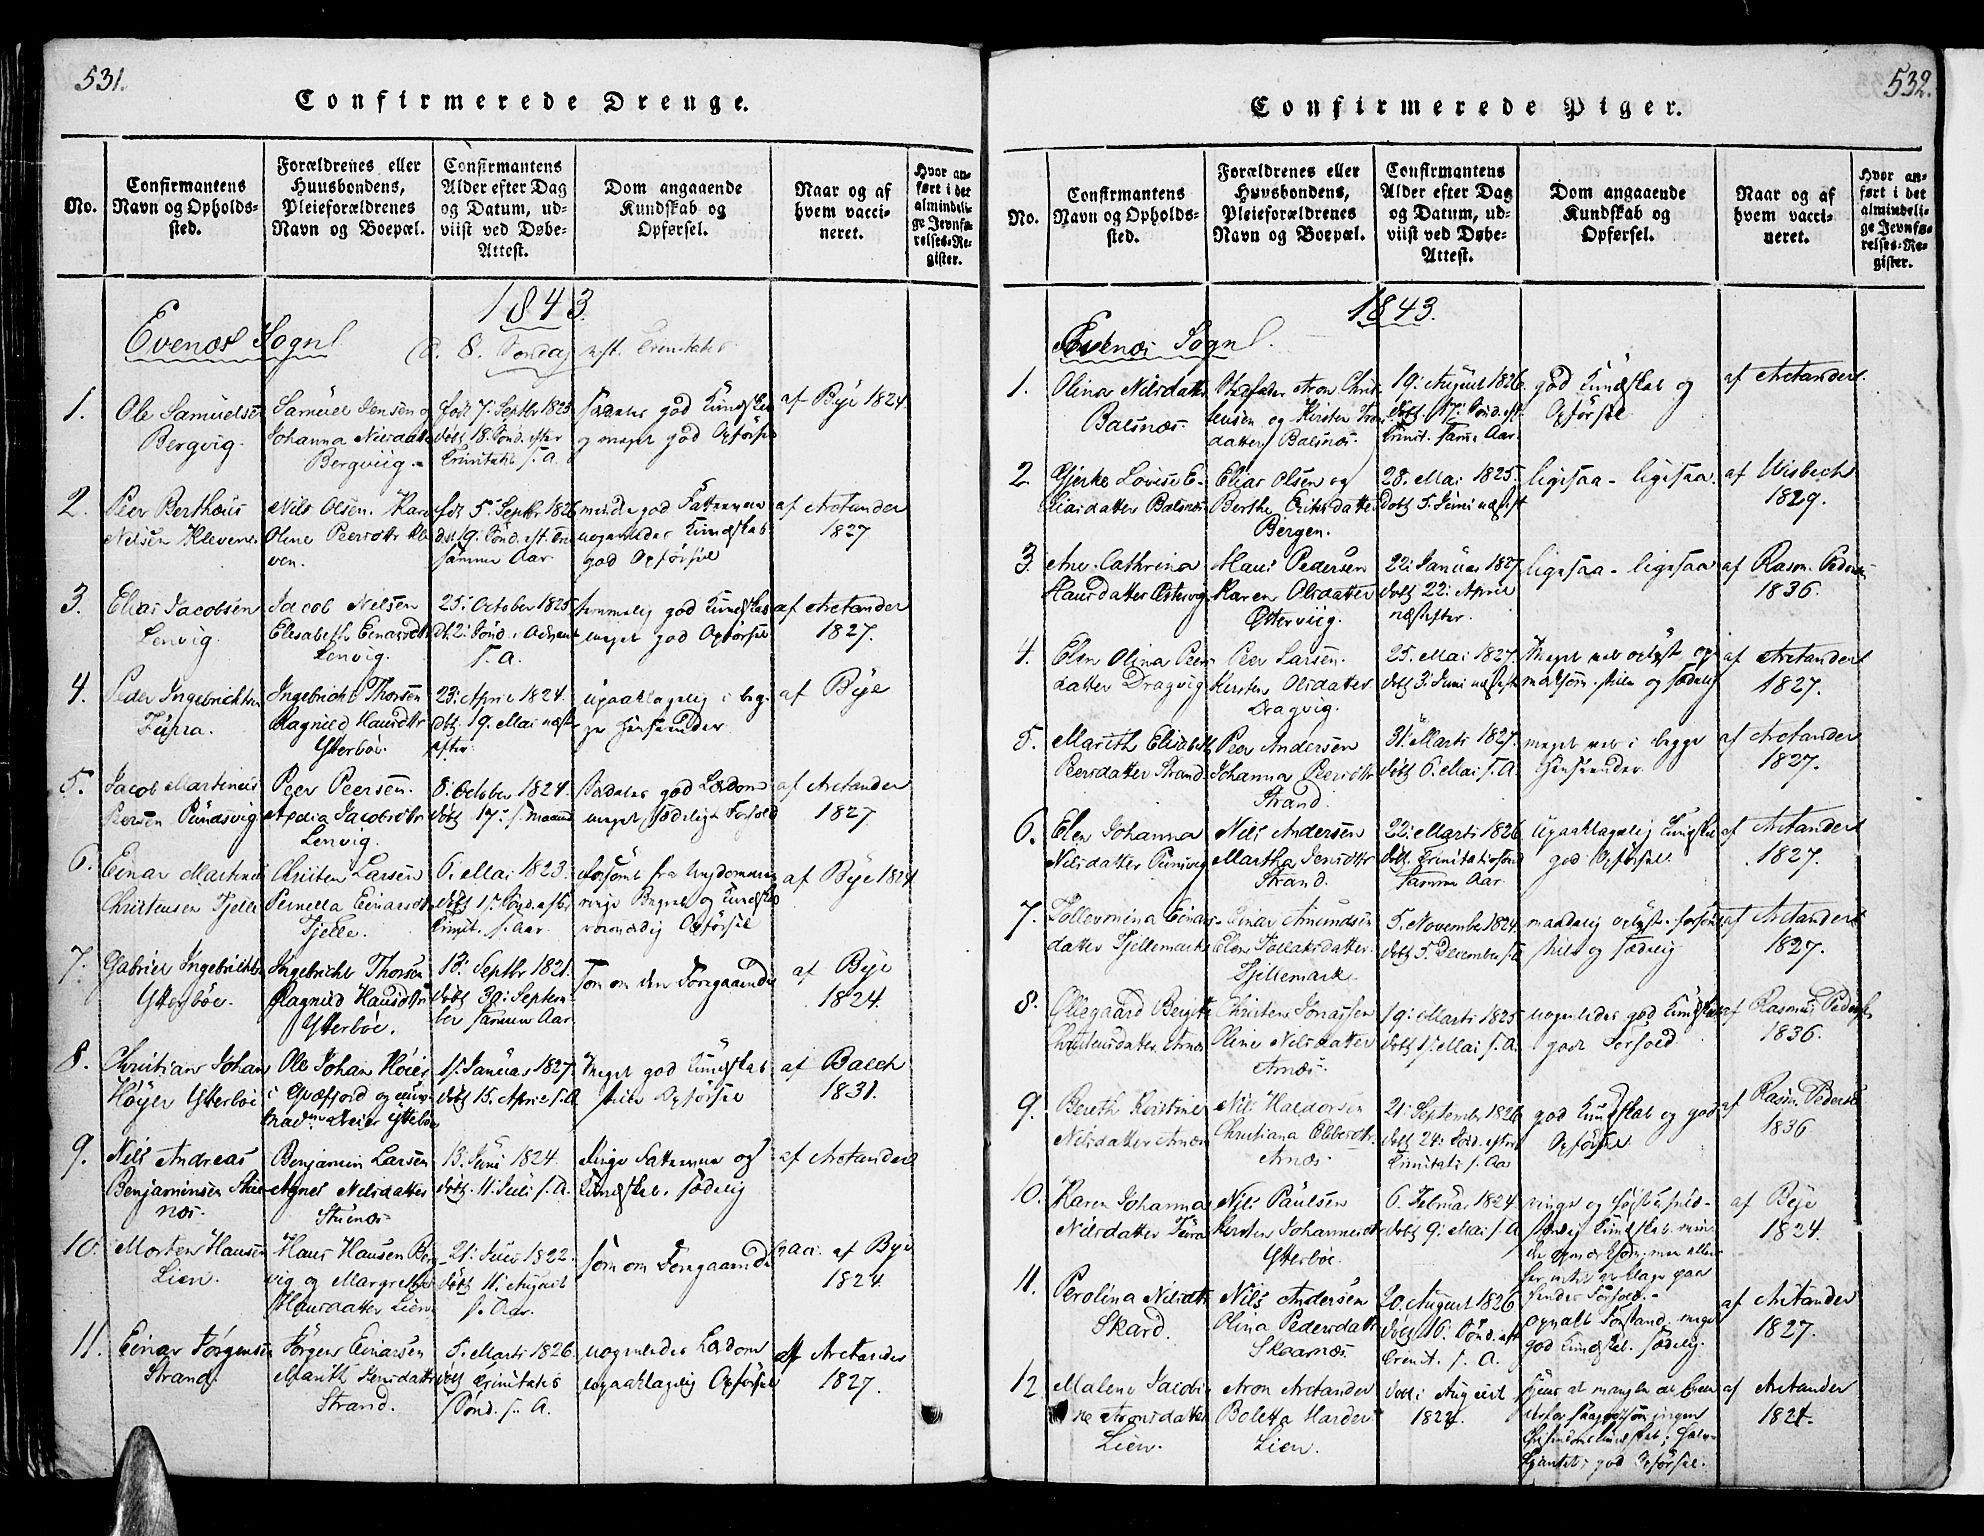 531.
Confirmerede Drenge.
No.
Confirmantens
Navn og Opholds-
sted.
Forældrenes eller
Huusbondens,
Pleieforældrenes
Navn og Boepæl.
Confirmantens
Alder efter Dag
og Datum, ud-
viist ved Døbe-
Attest.
Dom angaaende
Kundskab og
Opførsel.
Naar og af
hvem vacci-
neret.
Hvor an-
ført i det
almindeli-
ge Jevnfø-
relses-Re-
gister.
1843.
Evenæs Sogn
8. Søndag eft. Trinitatis
1.
Ole Samuelsen
Bergvig.
Samuel Jensen og
Johanna Nilsdatter
Bergviig.
født 7. Septbr 1825
døbt 18. Sønd. efter
Trinitatis s. A.
god Kundskab
og meget god Opførsel
af Bye 1824
2.
Peer Bertheus
Nilsen Kleven
Nils Olsen
Oline Peersdtr Kle
ven.
født 5. Septbr 1826
19. Sønd. eft. Tri
samme Aar
god Fatteevne
nogenledes Kundskab
god Opførsel
af Arctander
1827
3.
Elias Jacobsen
Lenvig.
Jacob Nilsen
Elisabeth Einarsdtr
Lenvig.
25. October 1825
2. Sønd. i Advent
s. A.
temmelig god Kundskab
meget god Opførsel
af Arctander
1827.
4.
Peder Ingebrichtsen
Ingebricht Thorsen
Ragnild Hansdtr
Ytterböe.
23. April 1824.
døbt 19. Mai næst
efter.
upaaklagelig i beg-
ge Henseender
af Bye
5.
Jacob Martinus
Peersen Pundsvig
Peer Peersen.
Jacobsdtr
Lenvig.
8. October 1824.
døbt 17. s. Maaned
god Læsdom
meget sædeligt Forhold
af Arctander
1827.
6.
Einar Martinus
Christensen Tjelle
Christen Larsen
Pernella Einarsdtr
Tjelle.
6. Mai 1823.
døbt 1. Sønd. efter
Trinit. s. Aar.
forsömt fra Ungdommen
ringe Begreb og Kundskab
Opførsel
af Bye 1824
7.
Gabriel Ingebrichts
Ytterböe.
Ingebricht Thorsen
Ragnild Hansdtr
Ytterböe.
13. Septbr 1821.
døbt 30. Septem-
ber samme Aar
Som om den Foregaaende
af Bye
1824.
8.
Christian Johan
Höyer Ytterböe
Ole Johan Höier
i Qvæfjord og
Ytterböe
1. Januar 1827.
døbt 15. April s. A
Meget god Kundskab
Opførsel
af Balch
1831.
9.
Nils Andreas
Benjaminsen Stue
næs.
Benjamin Larsen
Agnes Nilsdatter
Stuenæs.
13. Juni 1824.
døbt 11. Juli s. A.
Ringe Fatteevne og
Kundskab. sædelig
af Arctander
10.
Morten Hansen
Lien.
Hans Hansen Ber
vig og Margrethe
Hansdatter Lien
21. Juli 1822.
døbt 11. August
s. Aar.
som om Foregaaende
af Bye
1824.
11.
Einar Jörgensen
Strand.
Jörgen Einarsen
Marith Jensdatter
Strand.
5. Marts 1826.
døbt Trinitatis
Sönd. s. A.
nogenledes Læsdom
upaaklagelig Opførsel
af Arctander
1827.
532.
Confirmerede Piger.
No.
Confirmantens
Navn og Opholds-
sted.
Forældrenes eller
Huusbondens,
Pleieforældrenes
Navn og Boepæl.
Confirmantens
Alder efter Dag
og Datum, ud-
viist ved Døbe-
Attest.
Dom angaaende
Kundskab og
Opførsel.
Naar og af
hvem vacci-
neret.
Hvor an-
ført i det
almindeli-
ge Jevnfø-
relses-Re-
gister.
1843.
Evenæs Sogn.
1.
Olina Nilsdatter
Balsnæs.
Stedfader Aron Chri-
stensen og Kirsten
datter Balsnæs.
19. August 1826.
døbt 17. Sönd. eft.
Trinit. samme Aar.
god Kundskab og
Opførsel
af Arctander
2.
Gjerke Lovise E-
liasdatter Balsnæs
Elias Olsen og
Berthe Eriksdatter
Bergen.
28. Mai 1825.
døbt 5. Juni næsteft
ligesaa - ligesaa
af Wisbech
1829.
3.
Ane Cathrina
Hansdatter Østervig
Hans Pedersen
Karen Olsdatter
Østerviig.
22. Januar 1827.
døbt 22. April
næstefter.
ligesaa - ligesaa
af Rasm. Pedersen
1836.
4.
Elen Olina Peers
datter Dragvig
Peer Larsen.
Kirsten Olsdatter
Dragvig.
25. Mai 1827.
døbt 3. Juni næsteft
Meget vel oplyst og
stille og sædelig
af Arctander
1827.
5.
Marith Elisabeth
Peersdatter Strand
Peer Andersen
Johanna Peersdtr
Strand.
31. Marts 1827.
døbt 6. Mai s. A.
meget vel i begge
Henseender
af Arctander
1827.
6.
Elen Johanna
Nilsdatter
Nils Andersen
Martha Jensdtr
Strand.
22. Marts 1826
døbt Trinitatissönd
samme Aar.
Upaaklagelig Kundskab
god Opførsel.
af Arctander
1827.
7.
Tollevmina Einars-
datter Tjellemark
Einar Amundsen
Elen Tollaksdatter
Tjellemark
5. November 1824.
døbt 5. December s. A
maadelig oplyst.
stille og sædelig
af Arctander
1827.
8.
Ollegaard Bergitte
Christensdatter Arnæs
Christen Jonassen
Oline Nilsdatter
Arnæs.
19. Marts 1825
døbt 1. Mai s. A.
nogenledes god Kundskab
godt Forhold
af Rasmus Pedersen
1836.
9.
Bereth Kristine
Nilsdatter Arnæs
Nils Haldorsen
Christiana Olsdtr.
Arnæs.
21. September 1826
døbt 24. Sönd. efter
Trinitatis s. Aar
god Kundskab og god
Opførsel
af Rasm. Pedersen
1836
10.
Karen Johanna
Nilsdatter
Nils Paulsen
Kirsten Johannesdtr
Ytterböe.
6. Februar 1824.
døbt 9. Mai s. A
ringe og
Kundskab
hendes Forhold.
af Bye
1824.
11.
Perolina Nilsdtr
Skard.
Nils Andersen
Olina Pedersdatter
Skaarnæs.
20. August 1826
døbt 16. Sönd. eft
Trinit. s. A.
Forstand, meget
god Kundskab. Sædelig.
af Arctander
1827.
12
Malene Jacobi-
ne Aronsdatter
Lien.
Aron Arctander
Boletta Harder
Lien.
døbt i August
1824.
god Opførsel.
af Arctander
1827.